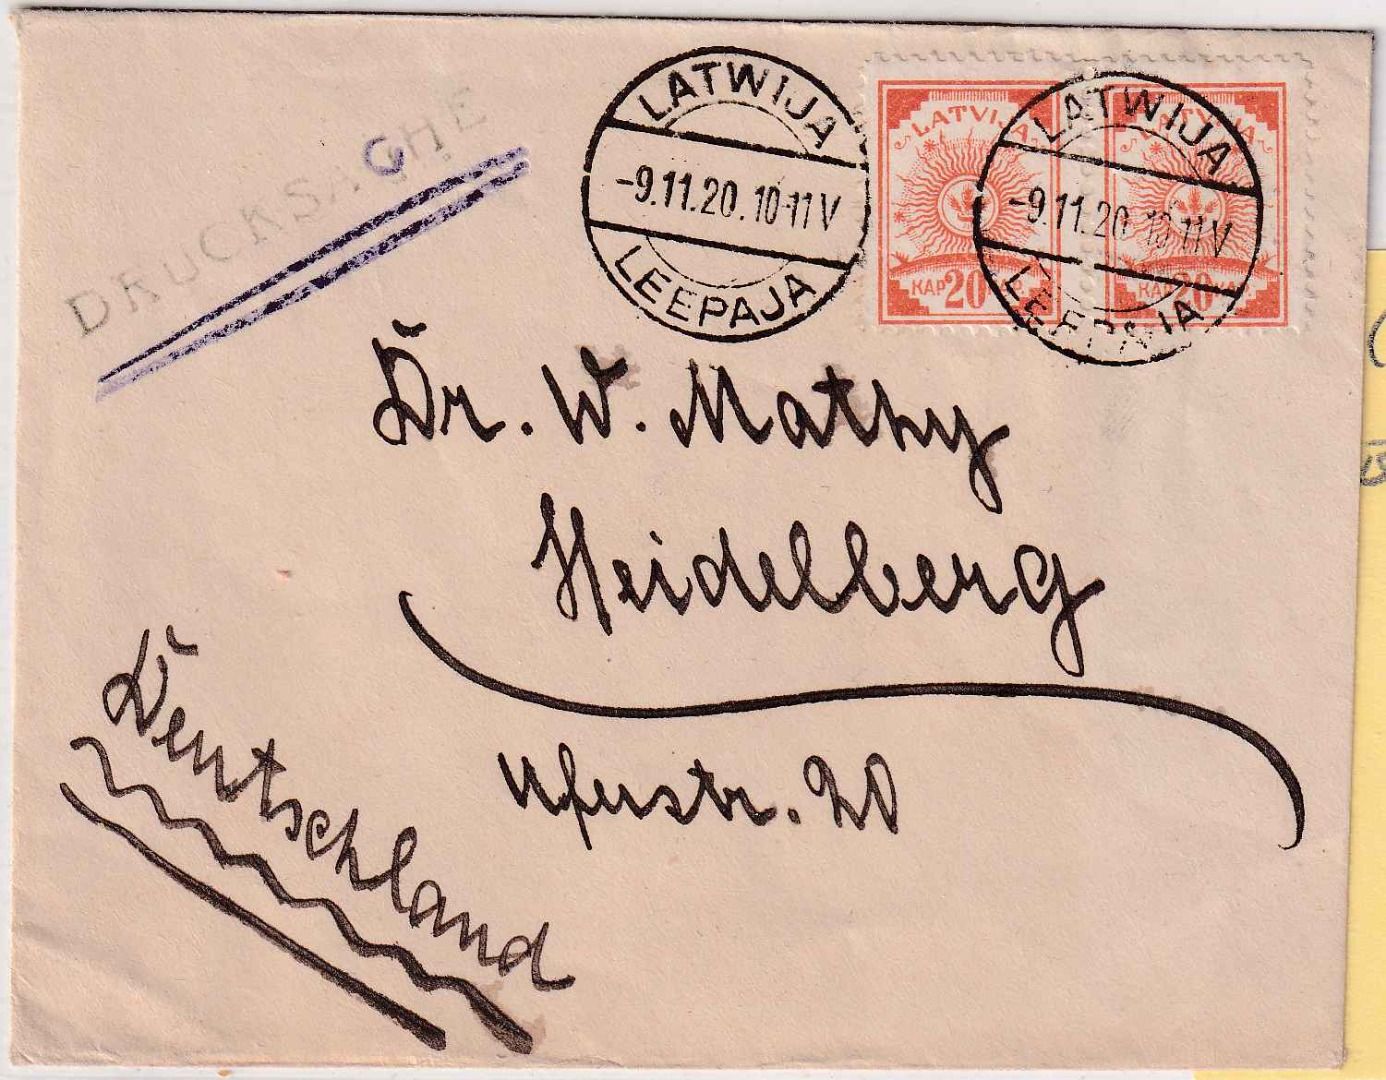 DRUCKSACHE
LATWIJA
-9.11.20.10-11V
LEEPAJA
LATVIJA
KAP 20
LATWIJA
-9.11.20 10-11V
LEEPAJA
KAP 20 KAP.
Dr. W. Mathy
Heidelberg
Uferstr. 20
Deutschland